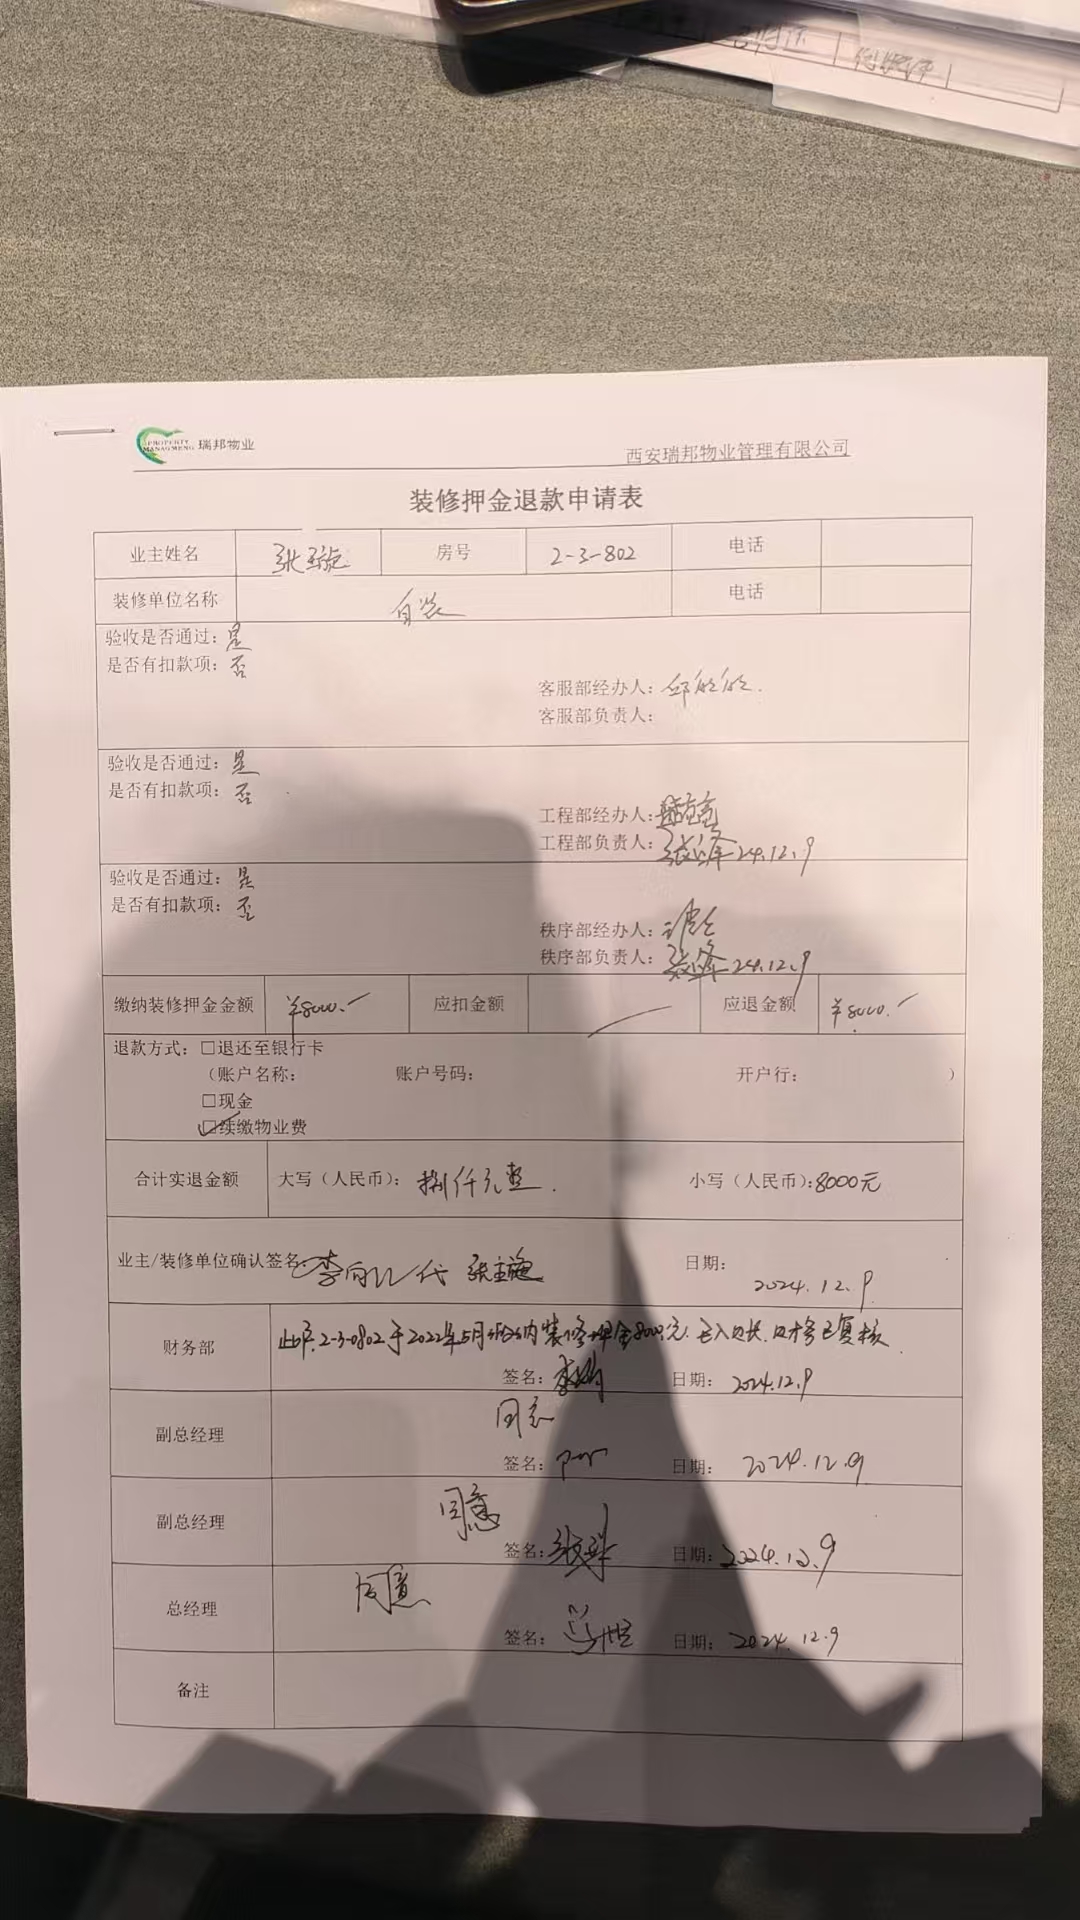 PROPERTY
MANAGMENG 瑞邦物业
西安瑞邦物业管理有限公司
装修押金退款申请表
业主姓名 房号 2-3-802 电话
装修单位名称 自装 电话
验收是否通过：是
是否有扣款项：否
客服部经办人：
客服部负责人：
验收是否通过：是
是否有扣款项：否
工程部经办人：
工程部负责人： 24.12.9
验收是否通过：是
是否有扣款项：否
秩序部经办人：
秩序部负责人： 24.12.9
缴纳装修押金金额 ¥8000.- 应扣金额 应退金额 ¥8000.-
退款方式：□退还至银行卡
（账户名称： 账户号码： 开户行： ）
□现金
☑续缴物业费
合计实退金额 大写（人民币）：捌仟元整. 小写（人民币）：8000元
业主/装修单位确认签名： 代 日期：
2024.12.9
财务部 此户.2-3-0802于2022年5月 内装修押金8000元. 已复核
签名： 日期： 2024.12.9
同意
副总经理
签名： 日期： 2024.12.9
同意
副总经理
签名： 日期：2024.12.9
同意
总经理
签名： 日期： 2024.12.9
备注